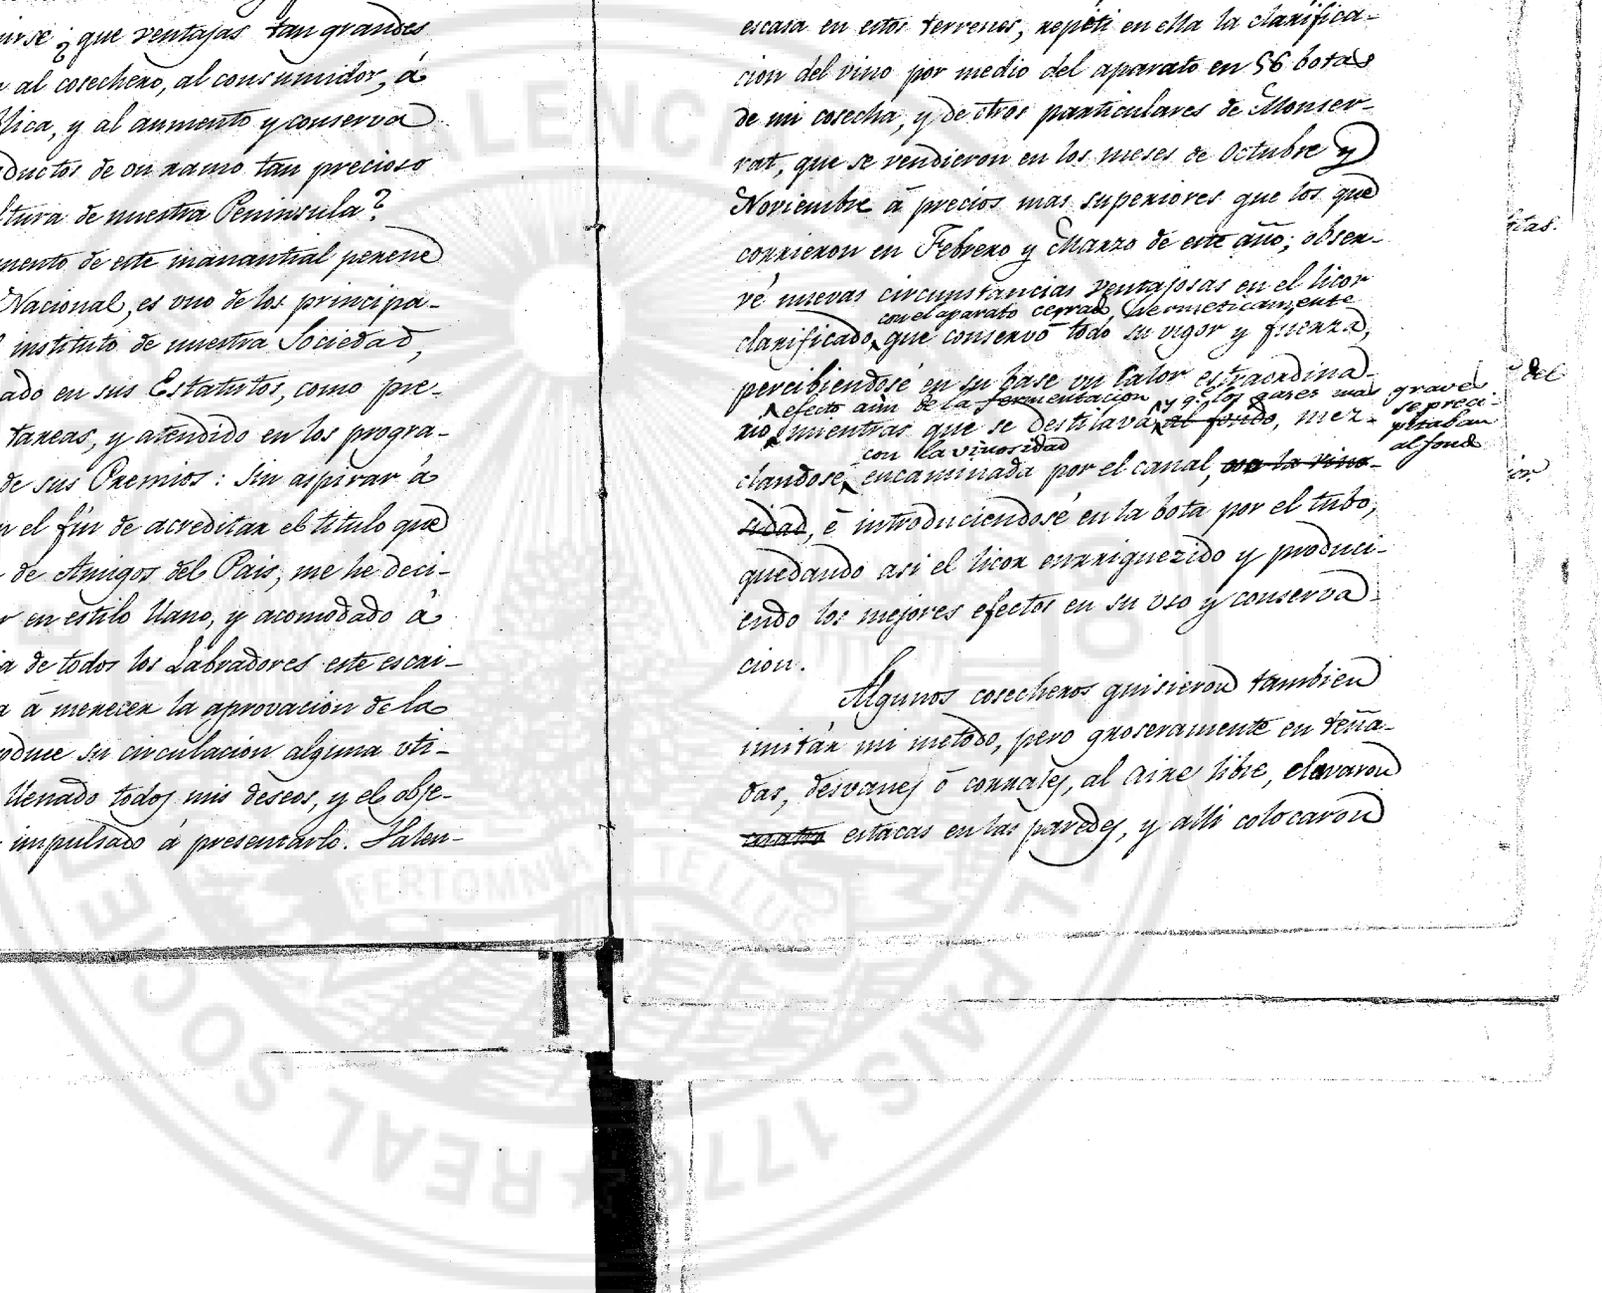 irse ¿que ventajas tan grandes
al cosechero, al consumidor, á
blica, y al aumento y conserva
ductos de un ramo tan precioso
ltura de nuestra Peninsula?
mento de este manantial perene
Nacional, es vno de los principa-
instituto de nuestra Sociedad,
ado en sus Estatutos, como pre-
tareas, y atendido en los progra-
de sus Premios: Sin aspirar á
n el fin de acreditar el titulo que
de Amigos del Pais, me he deci-
r en estilo llano, y acomodado á
a de todos los Labradores este escri-
a á merecer la aprovacion de la
oduce su circulacion alguna vti-
llenado todos mis deseos, y el obje-
impulsado á presentarlo. Valen-
escasa en estos terrenos, repetí en ella la clarifica-
cion del vino por medio del aparato en 56 botas
de mi cosecha, y de otros particulares de Monser-
rat, que se vendieron en los meses de Octubre y
Noviembre á precios mas superiores que los que
corrieron en Febrero y Marzo de este año; obser-
vé nuevas circunstancias ventajosas en el licor
con el aparato cerrado hermeticamente
clarificado, que conservó todo su vigor y fuerza,
percibiendosé en su base un calor estraordina-
efecto aún de la fermentacion y q.e los gases mas graves
se preci-
pitaban
al fondo
rio mientras que se destilava al fondo, mez-
con la vinosidad
clandosé, encaminada por el canal, con la vino-
sidad, é introduciendosé en la bota por el tubo,
quedando asi el licor enrriquezido y produci-
endo los mejores efectos en su vso y conserva-
cion.
Algunos cosecheros quisieron tambien
imitár mi metodo, pero groseramente en teña-
das, desvanes ó corrales, al aire libre, elavaron
cuatro estacas en las paredes, y alli colocaron
del